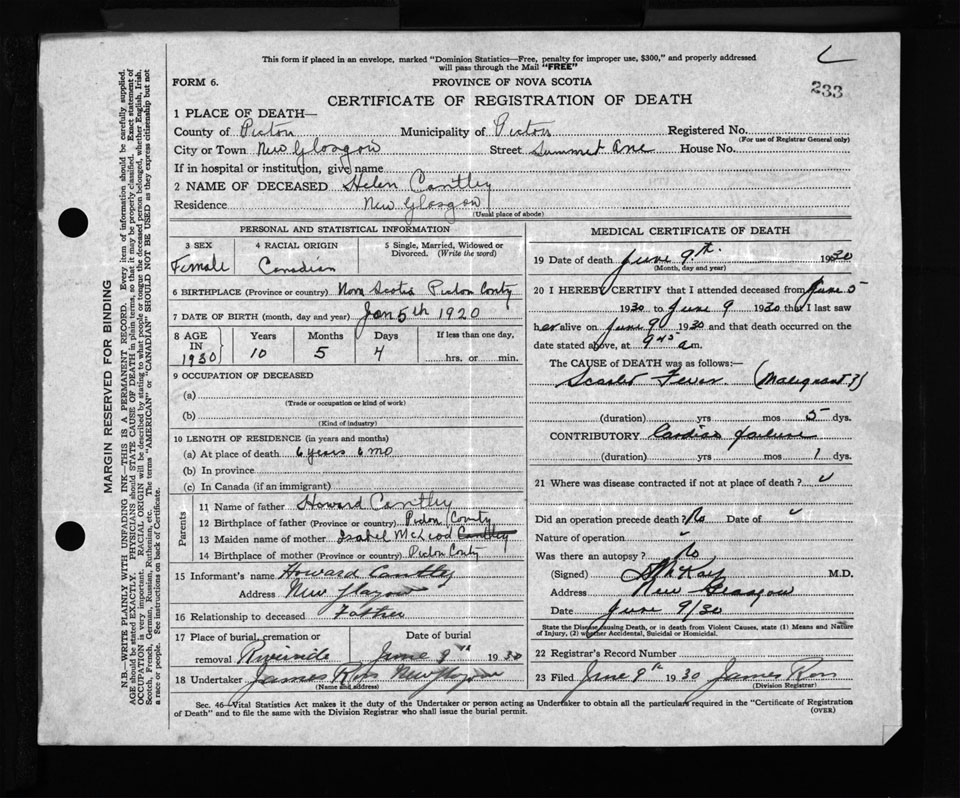 This form if placed in an envelope, marked "Dominion Statistics—Free, penalty for improper use, $300," and properly addressed
will pass through the Mail "FREE"
233
FORM 6. PROVINCE OF NOVA SCOTIA
CERTIFICATE OF REGISTRATION OF DEATH
1 PLACE OF DEATH—
County of Pictou Municipality of Pictou Registered No.
(For use of Registrar General only)
City or Town New Glasgow Street Summet Ave House No.
If in hospital or institution, give name
2 NAME OF DECEASED Helen Cantley
Residence New Glasgow
(Usual place of abode)
PERSONAL AND STATISTICAL INFORMATION
3 SEX 4 RACIAL ORIGIN 5 Single, Married, Widowed or Divorced. (Write the word)
Female Canadian
6 BIRTHPLACE (Province or country) Nova Scotia Pictou Conty
7 DATE OF BIRTH (month, day and year) Jan 5th 1920
8 AGE IN 1930 Years 10 Months 5 Days 4 If less than one day, hrs. or min.
9 OCCUPATION OF DECEASED
(a)
(Trade or occupation or kind of work)
(b)
(Kind of industry)
10 LENGTH OF RESIDENCE (in years and months)
(a) At place of death 6 years 6 mo
(b) In province
(c) In Canada (if an immigrant)
Parents
11 Name of father Howard Cantley
12 Birthplace of father (Province or country) Pictou County
13 Maiden name of mother Isabel McLeod Cantley
14 Birthplace of mother (Province or country) Pictou Conty
15 Informant's name Howard Cantley
Address New Glasgow
16 Relationship to deceased Father
17 Place of burial, cremation or removal Riverside Date of burial June 9th 1930
18 Undertaker James Ross New Glasgow
(Name and address)
MEDICAL CERTIFICATE OF DEATH
19 Date of death June 9th. 1930
(Month, day and year)
20 I HEREBY CERTIFY that I attended deceased from June 5
1930 to June 9 1930 that I last saw
her alive on June 9 1930 and that death occurred on
date stated above, at 9 45 a.m.
The CAUSE OF DEATH was as follows:—
Scarlet Fever (Malignant?)
(duration) yrs mos 5 dys.
CONTRIBUTORY Cardiac failure
(duration) yrs mos 1 dys.
21 Where was disease contracted if not at place of death?
Did an operation precede death? No Date of
Nature of operation
Was there an autopsy? No
(Signed) McKay M.D.
Address New Glasgow
Date June 9/30
State the Disease causing Death, or in death from Violent Causes, state (1) Means and Nature
of Injury, (2) whether Accidental, Suicidal or Homicidal.
22 Registrar's Record Number
23 Filed June 9th 1930 James Ross
(Division Registrar)
Sec. 46—Vital Statistics Act makes it the duty of the Undertaker or person acting as Undertaker to obtain all the particulars required in the "Certificate of Registration
of Death" and to file the same with the Division Registrar who shall issue the burial permit.
(OVER)
MARGIN RESERVED FOR BINDING
N.B.—WRITE PLAINLY WITH UNFADING INK—THIS IS A PERMANENT RECORD. Every item of information should be carefully supplied.
AGE should be stated EXACTLY. PHYSICIANS should STATE CAUSE OF DEATH in plain terms, so that it may be properly classified. Exact statement of
OCCUPATION is very important. RACIAL ORIGIN will be described by stating to what people or tongue the deceased person belonged, whether English, Irish,
Scotch, French, German, Russian, Ruthenian, etc. The terms "AMERICAN" or "CANADIAN" SHOULD NOT BE USED as they express citizenship but not
a race or people. See instructions on back of Certificate.